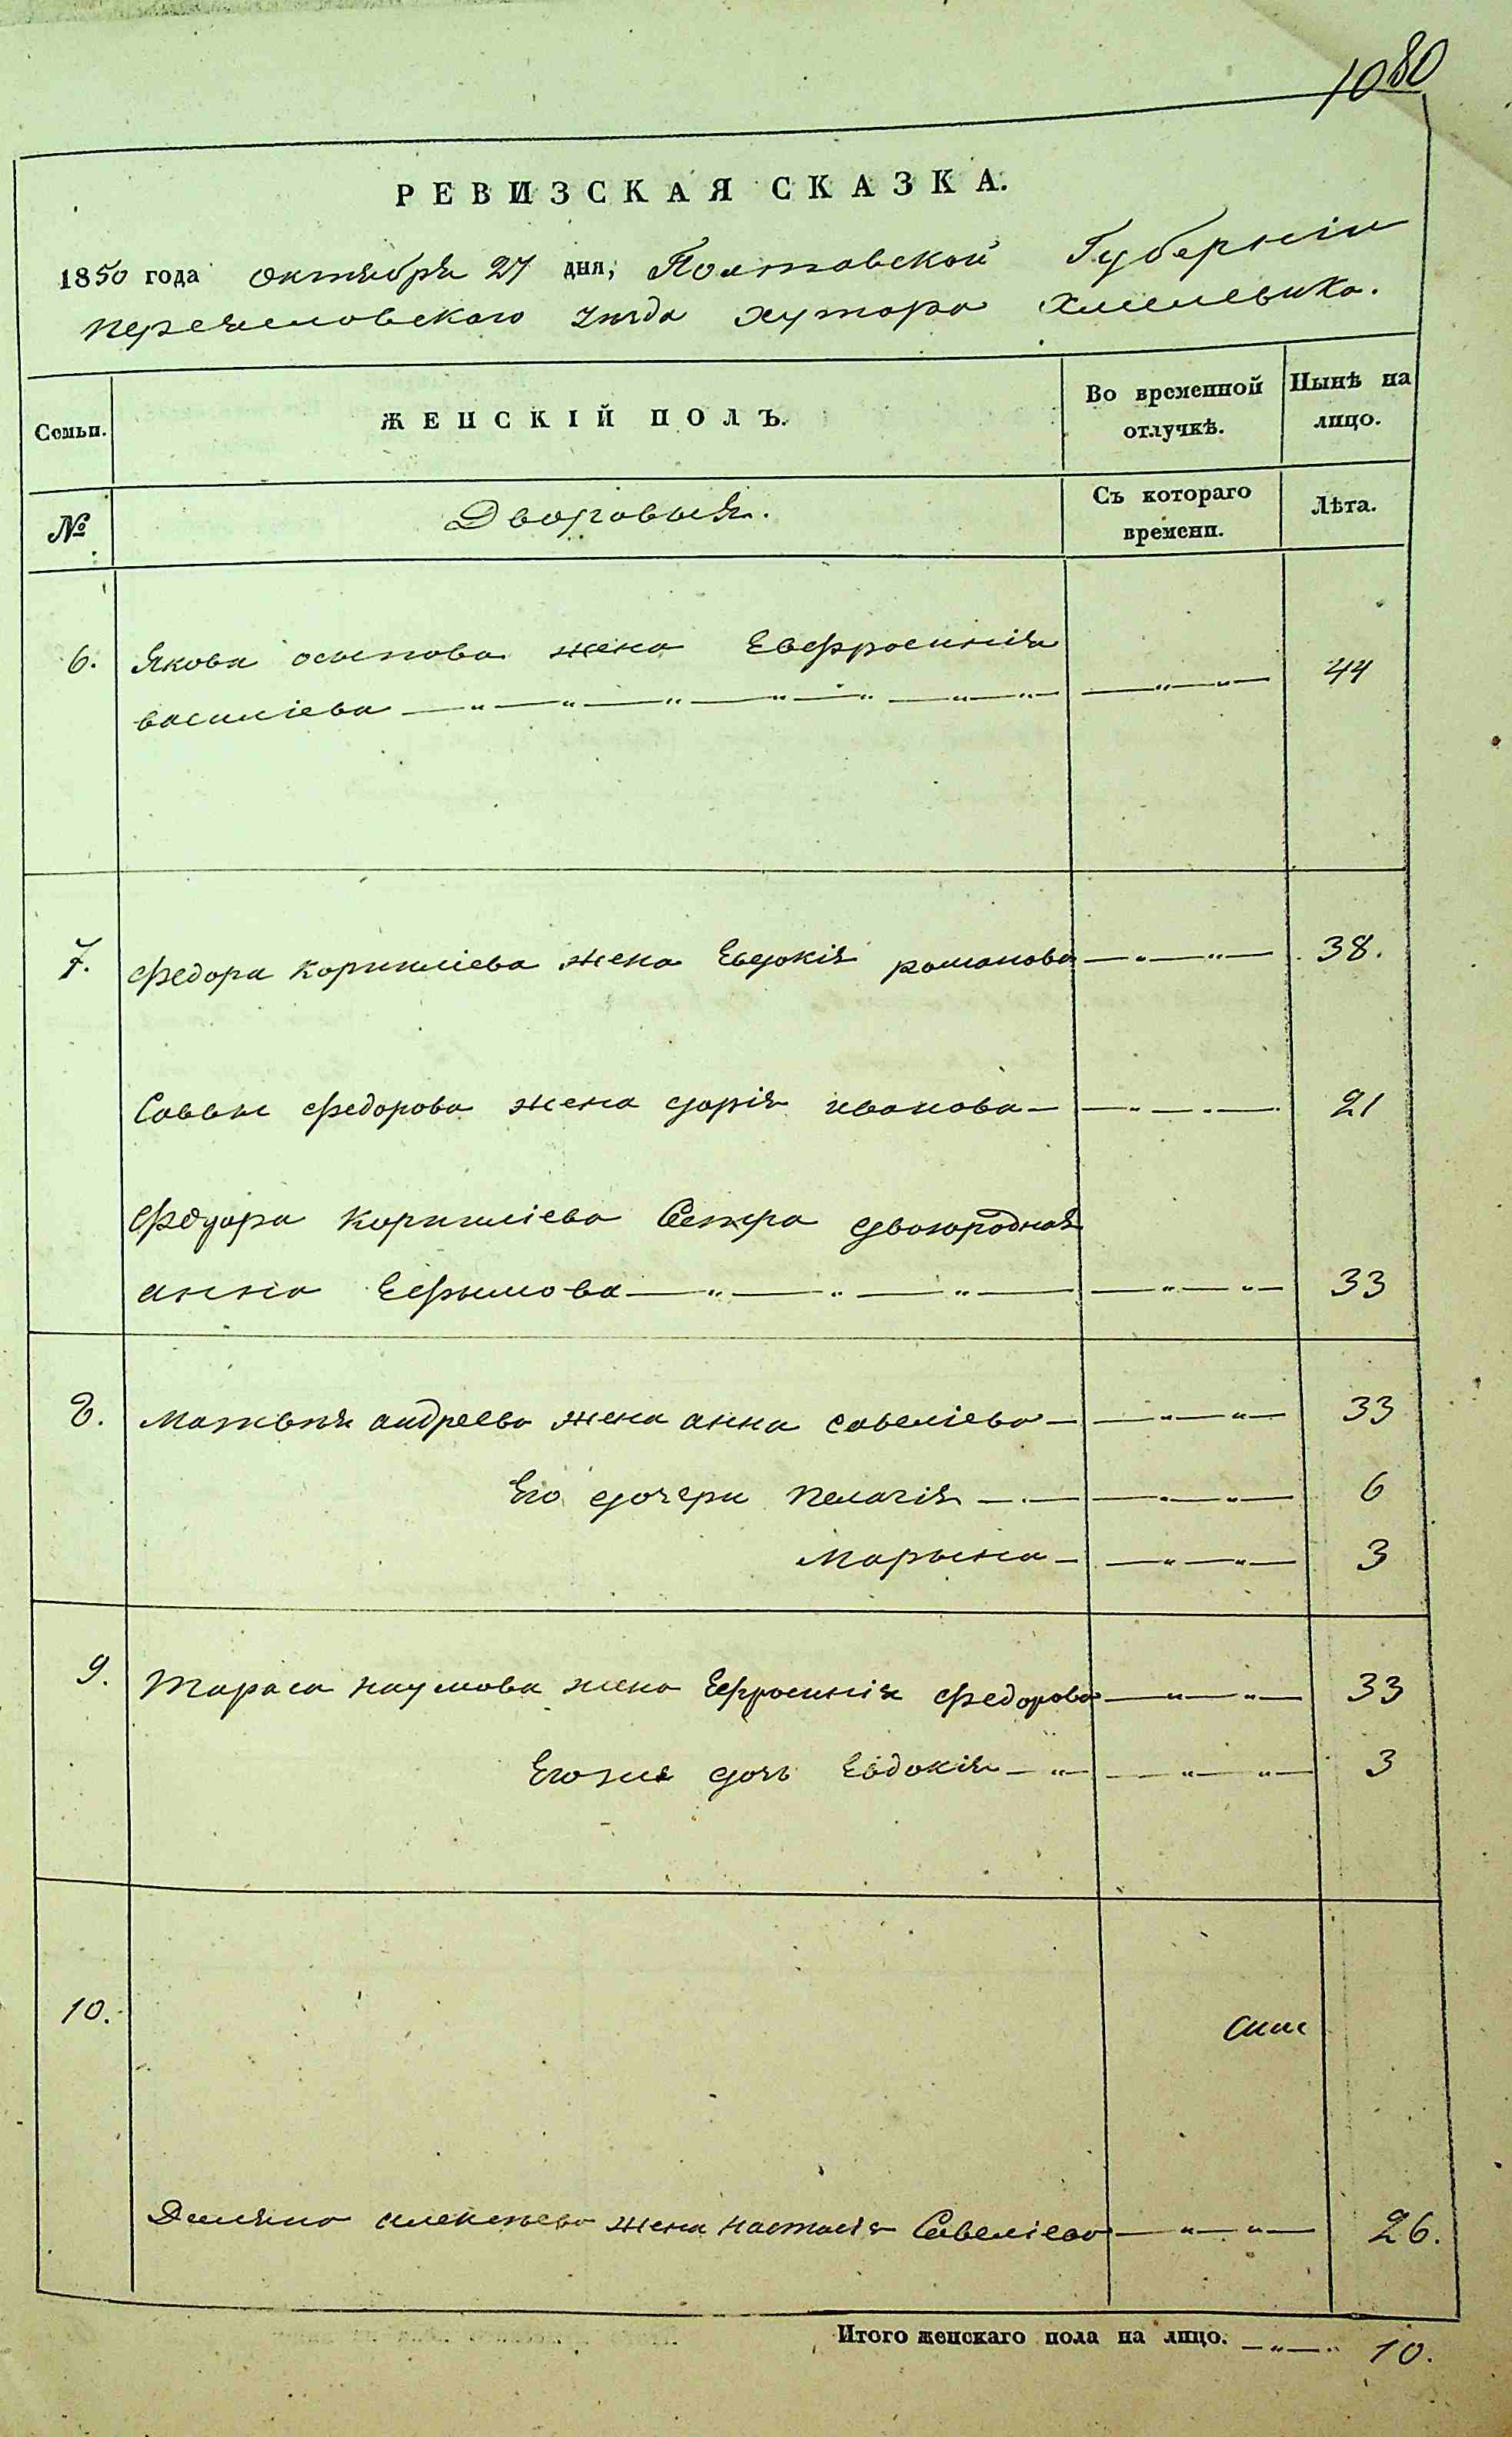 1080
РЕВИЗСКАЯ СКАЗКА.
1850 года октября 27 дня, Полтавской Губерніи
переяславского уезда хутора Хмелевика.
Семьи. ЖЕНСКІЙ ПОЛЪ. Во временной отлучкѣ. Нынѣ на лицо.
№ Дворовыя. Съ котораго времени. Лѣта.
6. Якова осипова жена Евфросинія
василіева — „ — „ — 44
7. федора корниліева жена Евдокія романова — „ — „ — 38.
Саввы федорова жена дарія иванова — — „ — „ — 21
Федора Корниліева Сестра двоюродная
анна Ефымова — „ — „ — 33
8. матвѣя андреева жена анна савеліева — — „ — „ — 33
Его дочери пелагія — „ — 6
Марына — — „ — „ — 3
9. Тараса наумова жена Ефросинія федорова — „ — „ — 33
Его же дочь Евдокія — „ — 3
10.
Демяна алексѣева жена настасія Савеліева — „ — „ — 26.
Итого женскаго пола на лицо. — „ — „ 10.